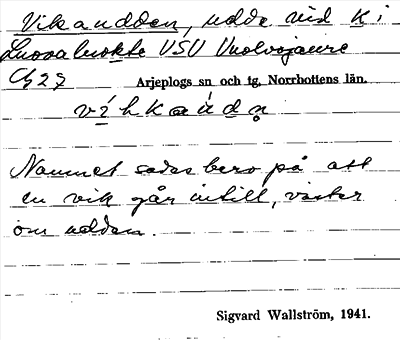 Vikaudden, udde vid K i
Luovaluokte VSV Vuolvojaure
Cb27 Arjeplogs sn och tg, Norrbottens län.
Namnet sades bero på att
en vik går intill, väster
om udden.
Sigvard Wallström, 1941.